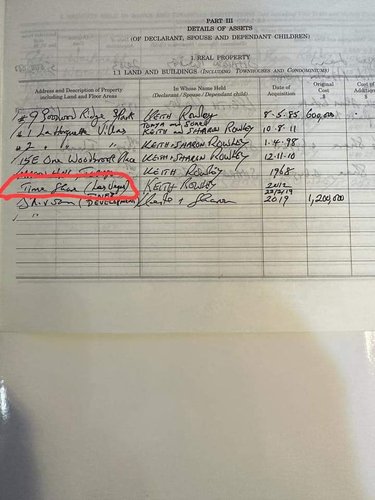 PART III
DETAILS OF ASSETS
(OF DECLARANT, SPOUSE AND DEPENDANT CHILDREN)
1. REAL PROPERTY
1.1 LAND AND BUILDINGS (INCLUDING TOWNHOUSES AND CONDOMINIUMS)
Address and Description of Property including Land and Floor Areas
In Whose Name Held (Declarant / Spouse / Dependant child)
Date of Acquisition
Original Cost $
Cost of Addition $
# 9 Goodwood Ridge Park KEITH Rowley 8-5-85 600,000
# 1 La Horquette Villas KEITH and SHARON ROWLEY 10-8-11
# 2 " " KEITH & SHARON ROWLEY 1-4-98
15E One Woodbrook Place KEITH & SHARON ROWLEY 12-11-10
KEITH ROWLEY 1968
Time Share (Las Vegas) KEITH ROWLEY 2012
(DEVELOPMENT) Sharon 2019 1,200,000
" "